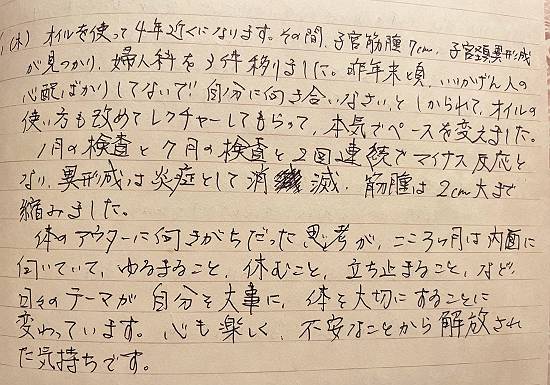 (木) オイルを使って4年近くになります。その間、子宮筋腫7cm、子宮頚異形成
が見つかり、婦人科を3件移りました。昨年末頃、いいかげん人の
心配ばかりしてないで!! 自分に向き合いなさい、と しかられて、オイルの
使い方も改めてレクチャーしてもらって、本気でペースを変えました。
1月の検査と7月の検査と2回連続でマイナス反応と
なり、異形成は炎症として消滅、筋腫は2cm大まで
縮みました。
体のアウターに向きがちだった思考が、ここ3ヶ月は内面に
向いていて、ゆるまること、休むこと、立ち止まること、など、
日々のテーマが自分を大事に、体を大切にすることに
変わっています。心も楽しく、不安なことから解放され
た気持ちです。